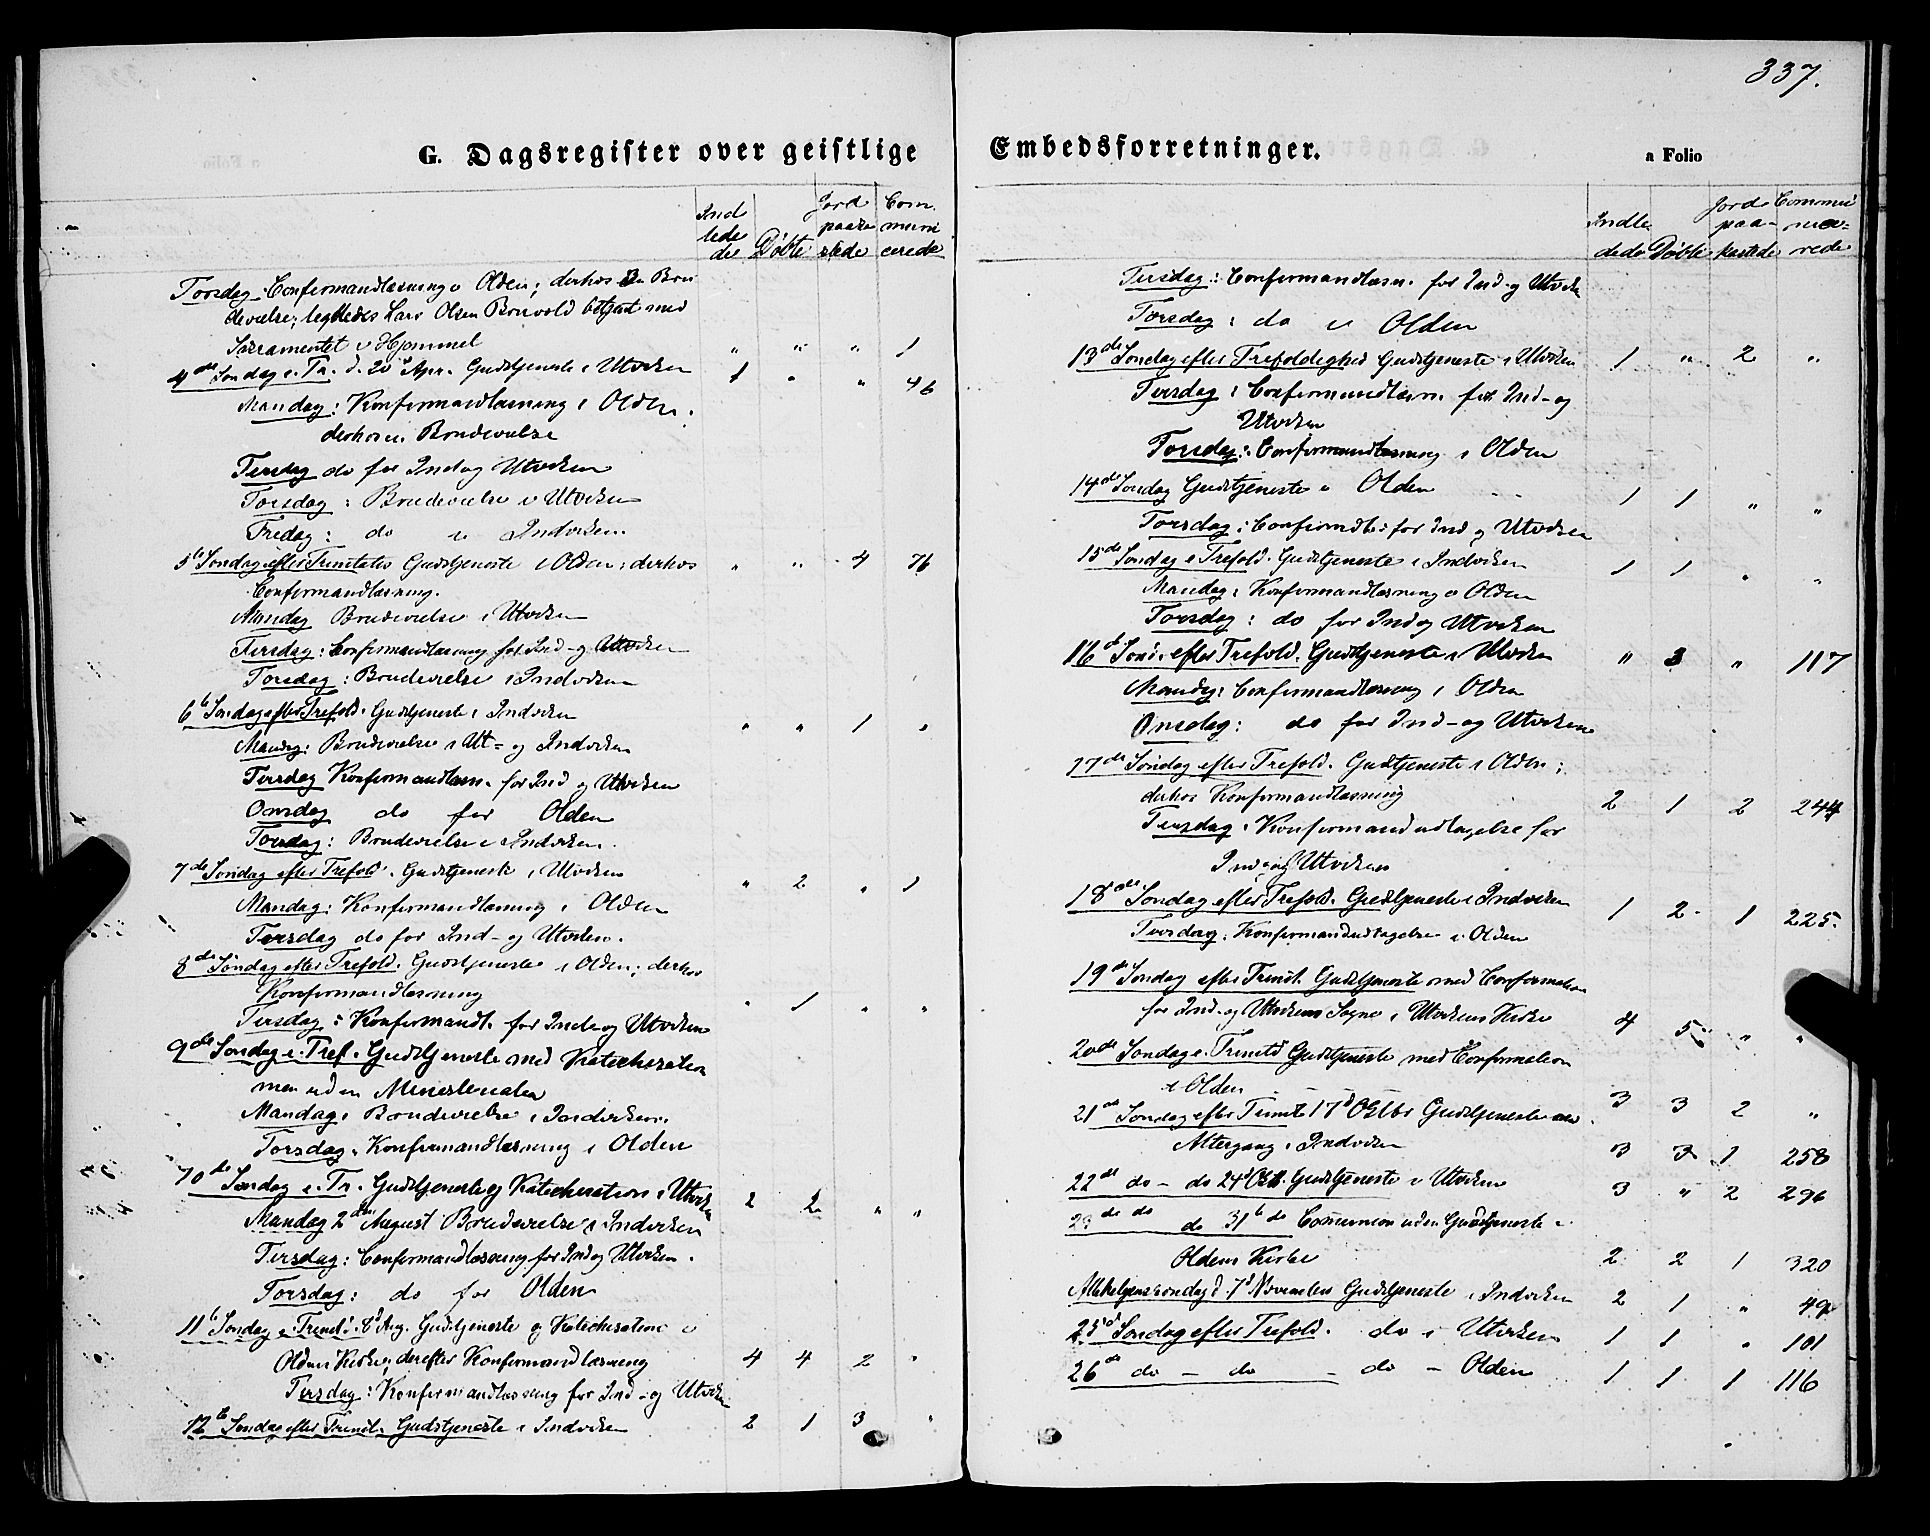 337.
G. Dagsregister over geistlige Embedsforretninger.
a Folio
Ind lede de | Døbte | Jord paaka stede | Com. muni cerede
Torsdag Confirmandlæsning i Olden; derhos en Bru
devielse; Lars Olsen Bruvold betjent med
Sacramentet i Hjemmet " " " 1
4de Søndag e. Tr. d. 20 Gudstjeneste i Utviken 1 " " 46
Mandag: Konfirmandlæsning i Olden.
derhos Brudevielse
Tirsdag do for Ind og Utviken
Torsdag: Brudevielse i Utviken
Fredag: do i Indviken
5te Søndag efter Trinitatis Gudstjeneste i Olden; derhos " " 4 76
Confirmandlæsning.
Mandag Brudevielse i Utviken
Tirsdag: Confirmandlæsning for Ind- og Utviken
Torsdag: Brudevielse i Indviken
6te Søndag efter Trefold. Gudstjeneste i Indviken " " 1 "
Mandag: Brudevielse i Ut- og Indviken
Tirsdag Konfirmandlæsn. for Ind og Utviken
Onsdag do for Olden
Torsdag: Brudevielse i Indviken.
7de Søndag efter Trefold. Gudstjeneste i Utviken " 2 " 1
Mandag: Konfirmandlæsning i Olden
Tirsdag do for Ind- og Utviken.
8de Søndag efter Trefold. Gudstjeneste i Olden; derhos
Konfirmandlæsning " 1 " "
Tirsdag: Konfirmandl. for Ind og Utviken
9de Søndag e. Tref. Gudstjeneste med Katechisation
men uden Ministerialia
Mandag: Brudevielse i Indviken.
Torsdag. Konfirmandlæsning i Olden
10de Søndag e. Tr. Gudstjeneste og Katechisation i Utviken 2 2 " "
Mandag 2den August Brudevielse i Indviken
Tirsdag: Confirmandlæsning for Ind og Utviken.
Torsdag: do for Olden
11te Søndag e. Trinit. 8d Aug. Gudstjeneste og Katechisation i
Olden Kirke; derefter Konfirmandlæsning 4 4 2 "
Tirsdag: Konfirmandlæsning for Ind- og Utviken
12te Søndag efter Trinit. Gudstjeneste i Indviken 2 1 3 "
Indle dede | Døbte | Jords paa- kastede | Commu nice- rede
Tirsdag: Confirmandlæsn. for Ind- og Utviken
Torsdag: do i Olden
13de Søndag efter Trefoldighed Gudstjeneste i Utviken 1 " 2 "
Tirsdag: Confirmandlæsn. for Ind- og
Utviken
Torsdag: Confirmandlæsning i Olden
14de Søndag Gudstjeneste i Olden 1 1 " "
Torsdag: Confirmdl: for Ind og Utviken
15de Søndag e Trefold. Gudstjeneste i Indviken 1 1 " "
Mandag: Konfirmandlæsning i Olden
Torsdag: do for Ind og Utviken
16d Sønd. efter Trefold. Gudstjeneste i Utviken " 3 " 117
Mandag: Confirmandlæsning i Olden
Onsdag: do for Ind- og Utviken
17de Søndag efter Trefold. Gudstjeneste i Olden;
derhos Konfirmandlæsning 2 1 2 244
Tirsdag: Konfirmandudtagelse for
Ind- og Utviken
18de Søndag efter Trefold. Gudstjeneste i Indviken 1 2 1 225
Tirsdag: Konfirmandudtagelse i Olden
19de Søndag efter Trinit. Gudstjeneste med Confirmation
for Ind- og Utvikens Sogne i Utvikens Kirke 4 5 " "
20de Søndag e. Trinit Gudstjeneste med Confirmation
i Olden 3 3 2 "
21de Søndag efter Trinit 17d Octbr Gudstjeneste
Altergang i Indviken 3 3 1 258
22de do – do 24d Oct. Gudstjeneste i Utviken 3 " 2 296
23de do do 31te do Communion uden Gudstjeneste i
Oldens Kirke 2 2 1 320
Allehelgenssøndag d. 7d November Gudstjeneste i Indviken 2 1 " 49
25d Søndag efter Trefold. do i Utviken 1 1 " 101
26de do – do – do – Olden 1 1 1 116